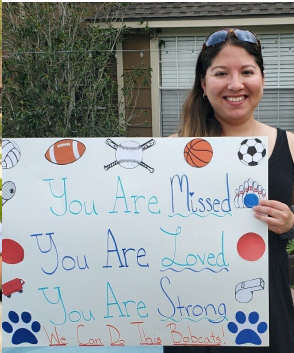 You Are Missed
You Are Loved
You Are Strong
We Can Do This Bobcats!